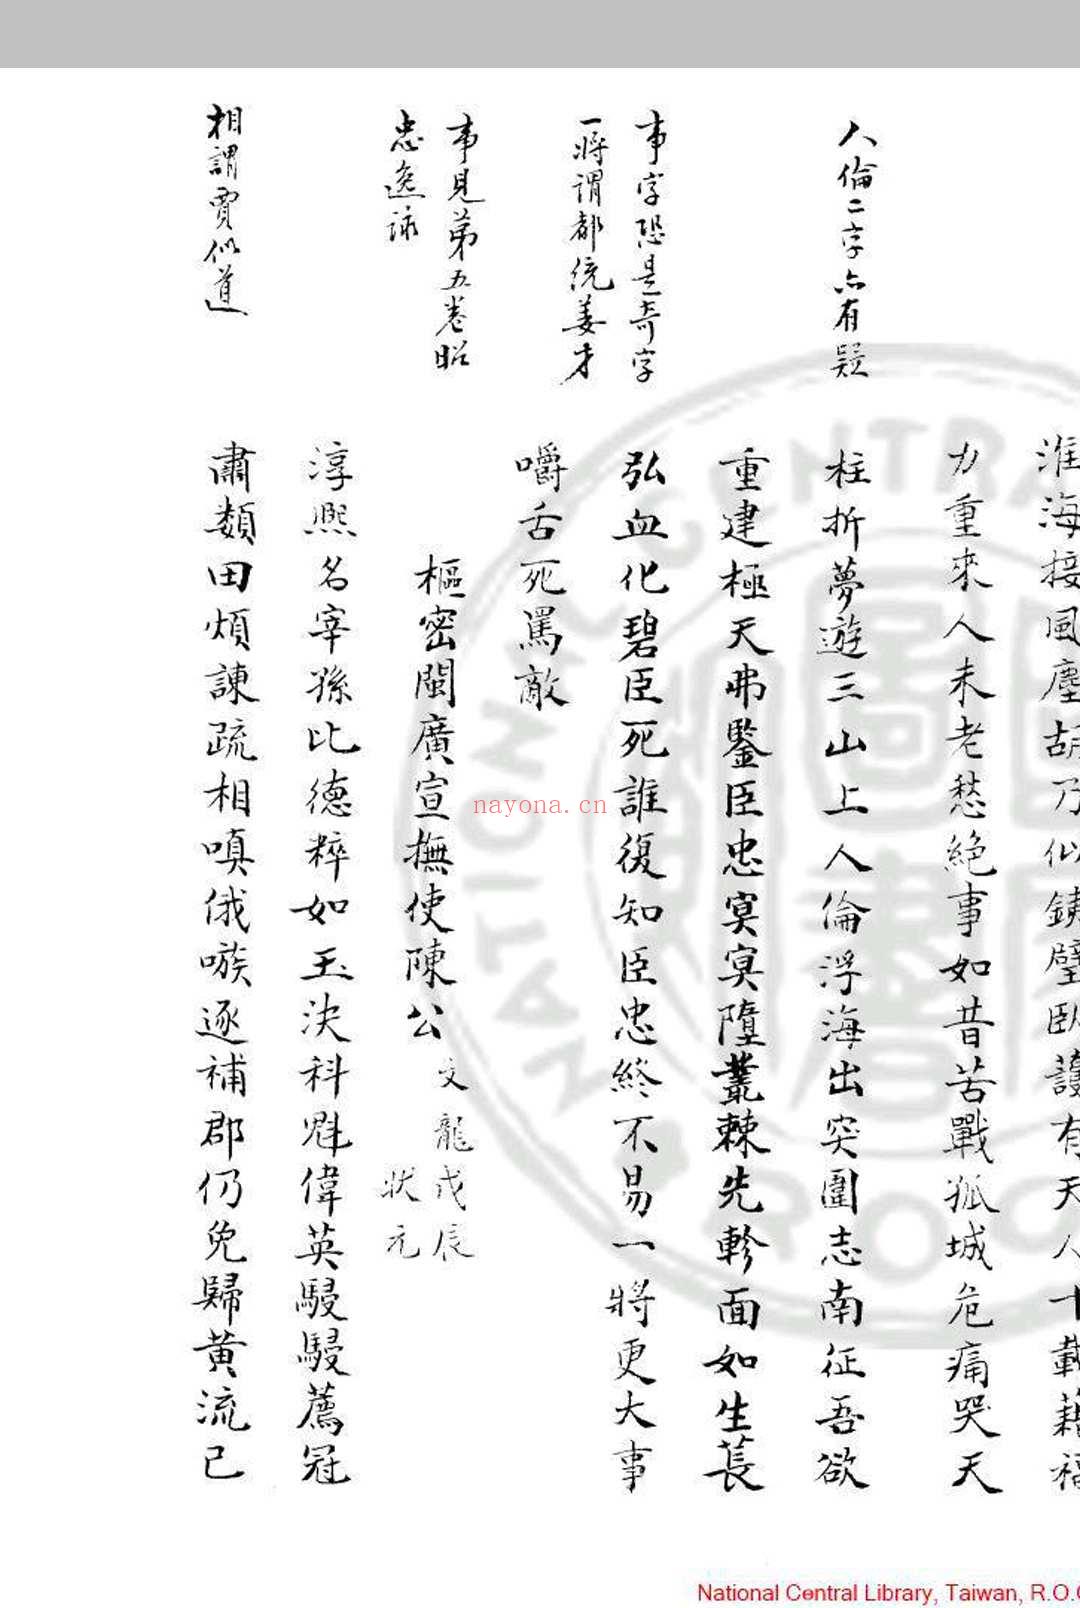 淮海接風塵胡乃似鐵壁臥護有天人十載藉福
力重來人未老愁絕事如昔苦戰孤城危痛哭天
人倫二字亦有疑
柱折夢遊三山上人倫浮海出突圍志南征吾欲
重建極天弗鑒臣忠冥冥墮叢棘先軫面如生萇
事字恐是奇字
一將謂都統姜才
弘血化碧臣死誰復知臣忠終不易一將更大事
嚼舌死罵敵
事見第五卷昭
忠逸詠
樞密閩廣宣撫使陳公
文龍戊辰
狀元
淳熙名宰孫比德粹如玉決科魁偉英駸駸薦冠
相謂賈似道
肅類田煩諫疏相嗔俄嗾逐補郡仍免歸黃流已
nayona.cn
National Central Library, Taiwan, R.O.C